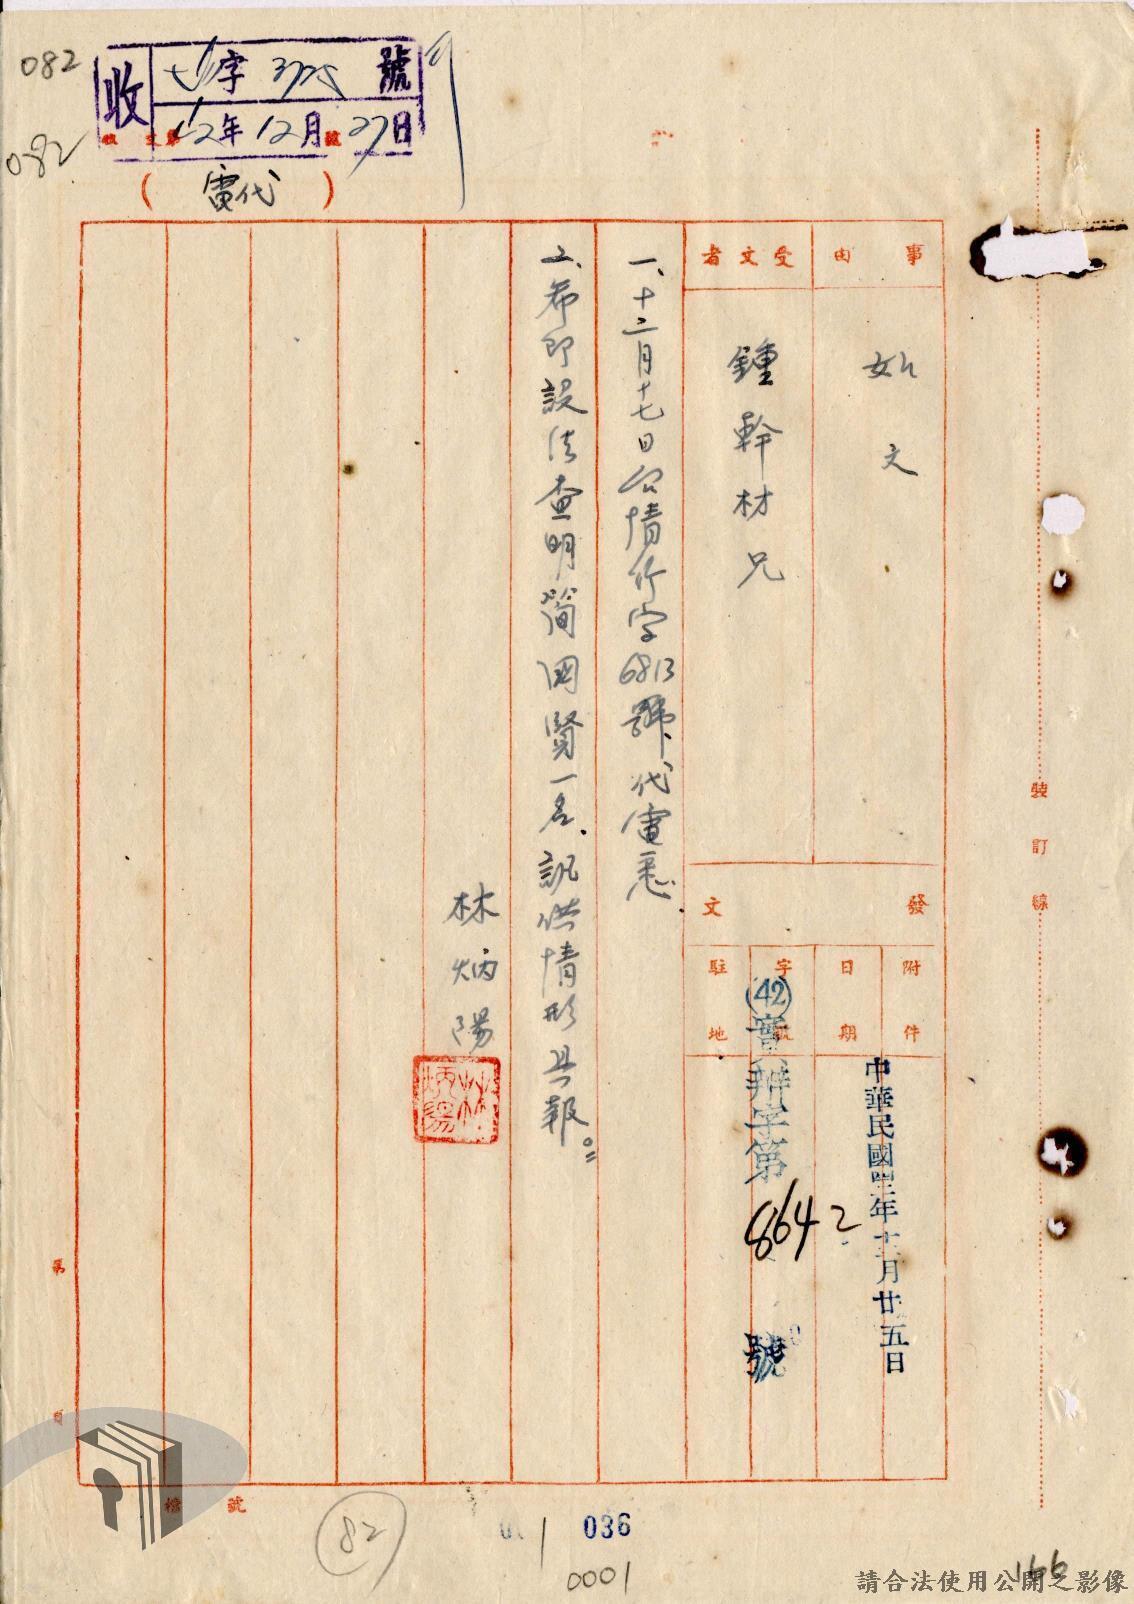 082
082
收
字 號
42年12月27日
(代電)
事由
如文
受文者
鍾幹材兄
發文
附件
日期
中華民國四二年十二月廿五日
字號
(42)實辦字第8642號
駐地
一、十二月十七日公情竹字6813號代電悉.
二、希即設法查明簡國賢一名.訊供情形具報。
林炳陽
林炳陽
裝訂線
第 頁
檔號
82
036
0001
166
請合法使用公開之影像